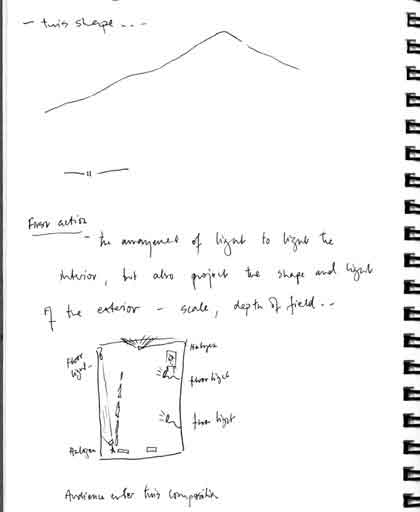 - this shape . . .
— 11 —
First action
- the arrangement of light to light the
interior, but also project the shape and light
of the exterior - scale, depth of field . .
Halogen
floor
light -
floor light
floor light
Halogen
Audience enter this composition